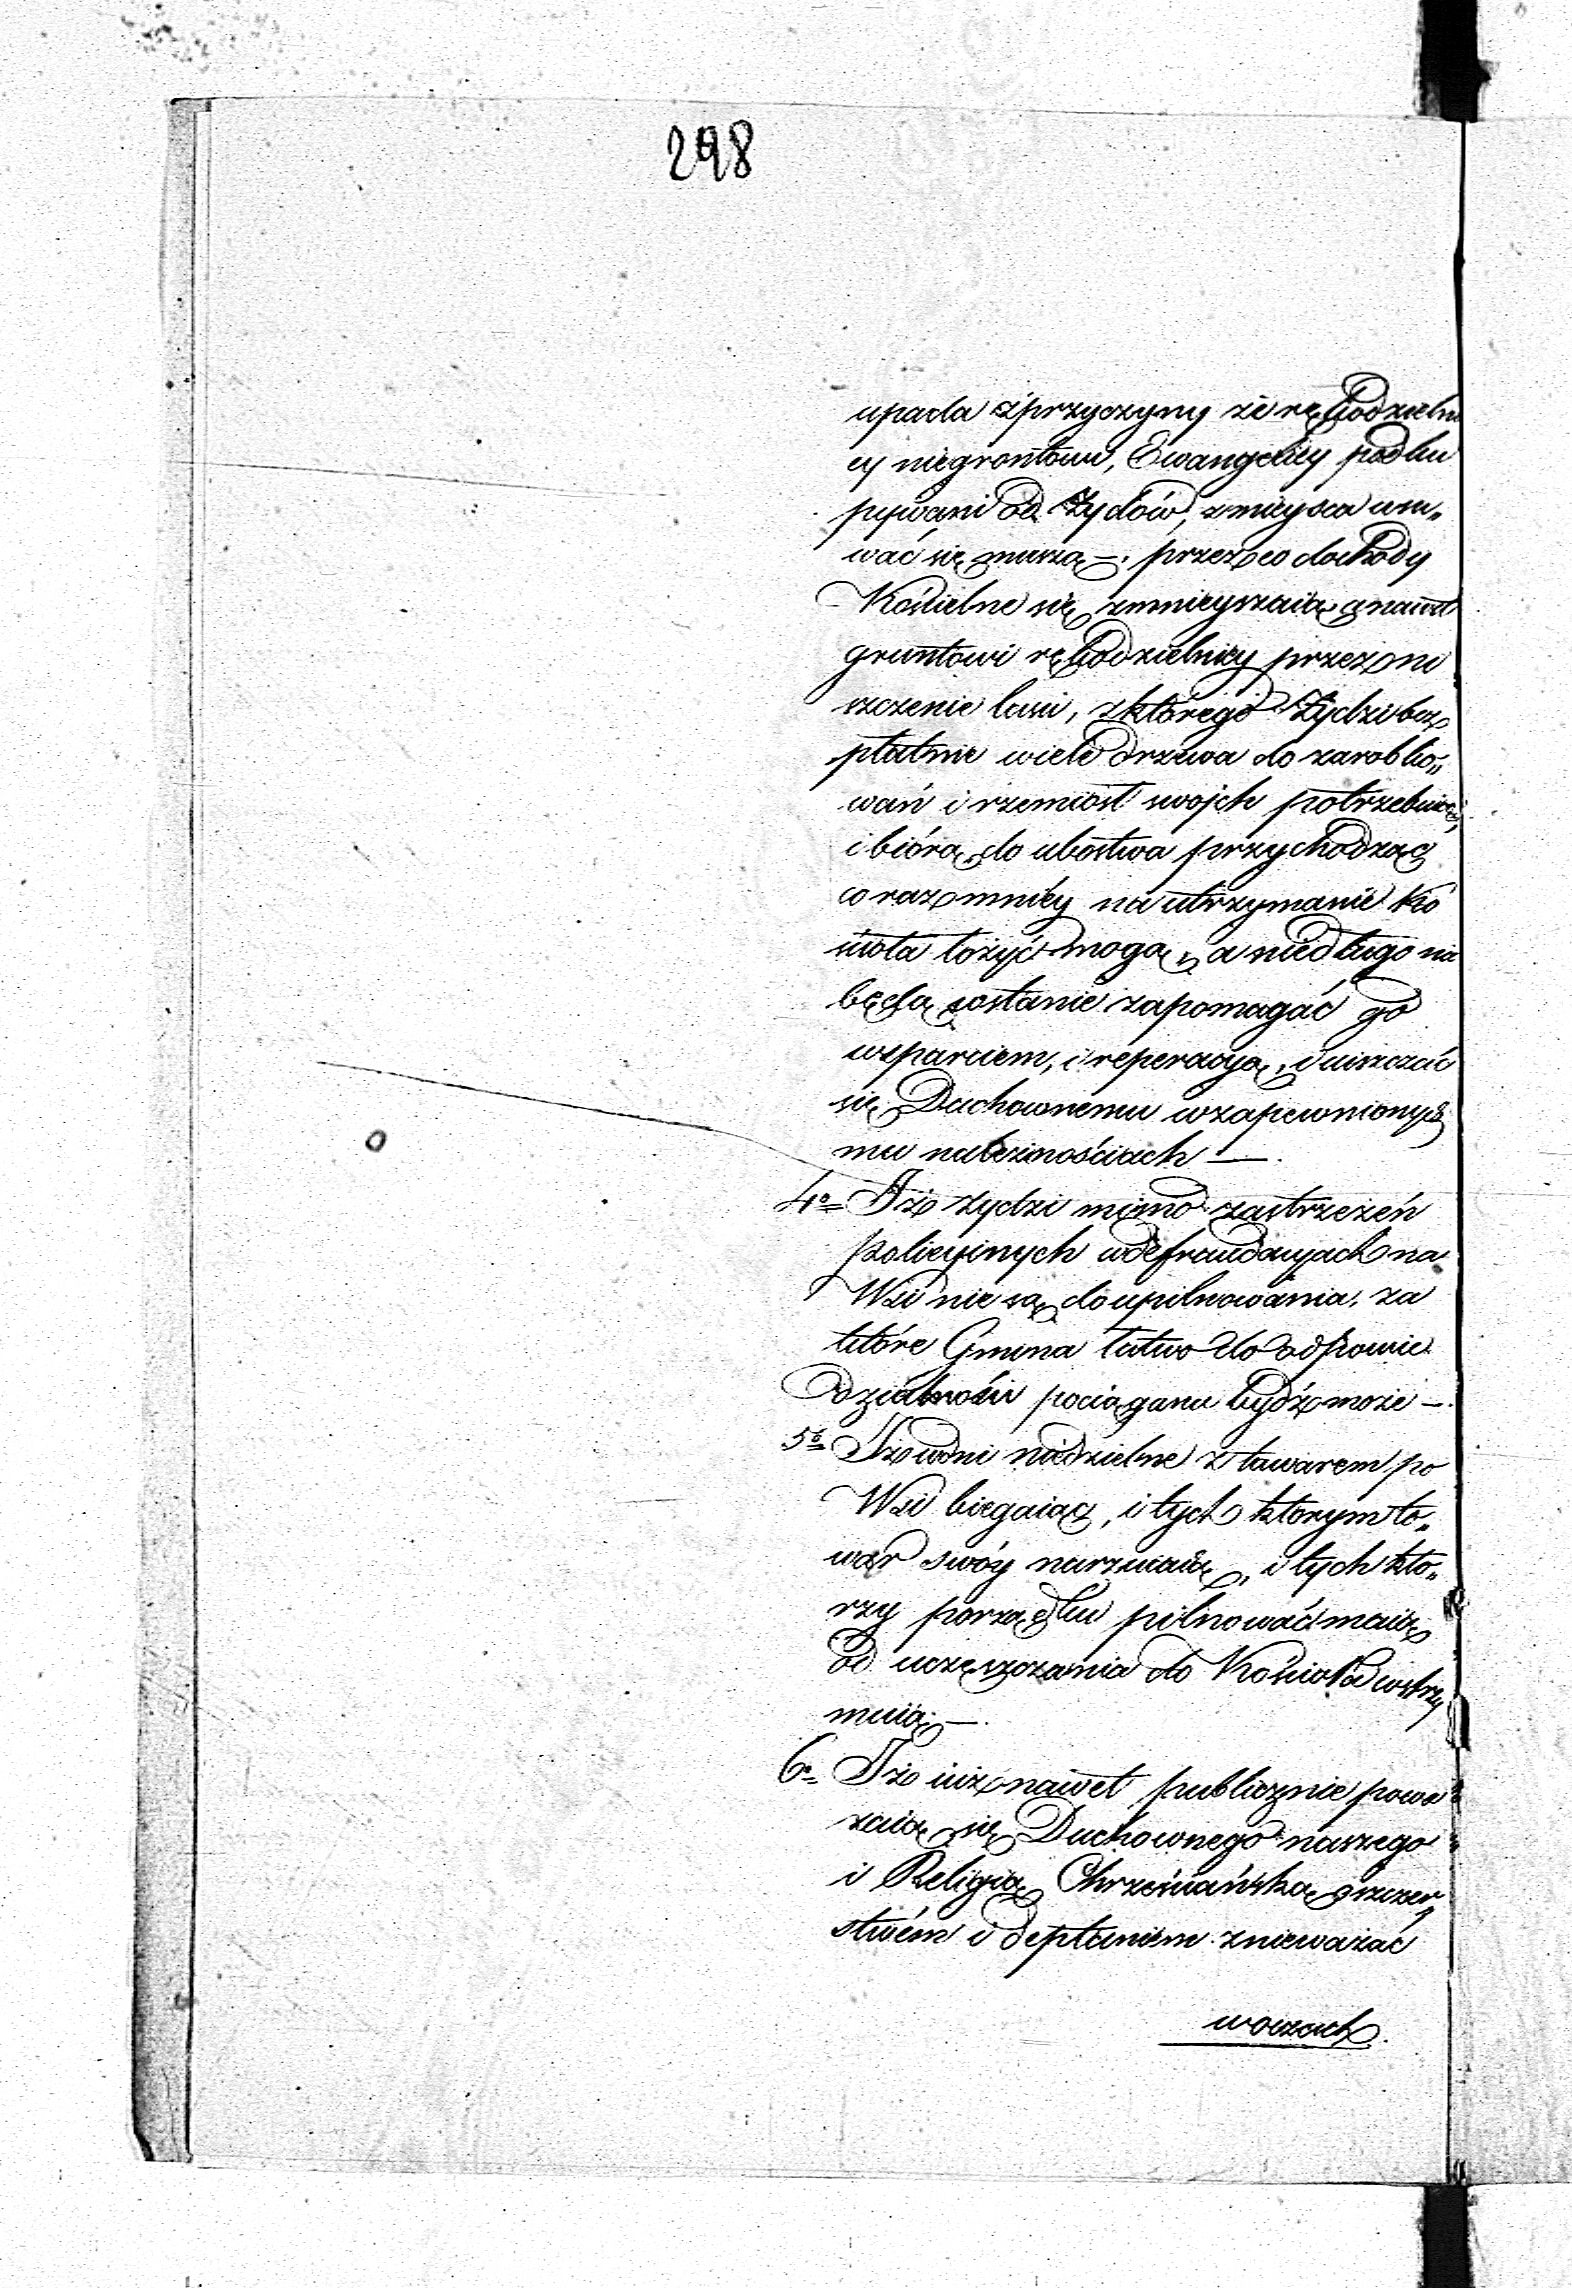 298
upada z przyczyny że rękodzielni
cy niegrontowi, Ewangelicy podku
pywani od Żydów, z mieysca usu„
wać się muszą –. przez co dochody
Kościelne się zmnieyszaią, a nawet
gruntowi rękodzielnicy przez zni
szczenie lasu, z którego Żydzi bez
płatnie wiele drzewa do zarobko„
wań i rzemiosł swojch potrzebuią,
i biórą, do ubostwa przychodząc
coraz mniéy na utrzymanie Ko
ścioła łożyć mogą, a niedługo nie
będą wstanie zapomagać go
wsparciem, i reperacyą, i uiszczać
się Duchownemu w zapewnionych
mu należnościach —.
4o Iż żydzi mimo zastrzeżeń
policyinych w defraudacyjach na
Wsi nie są do upilnowania, za
które Gmina łatwo do odpowie
dzialności pociąganą bydź może –.
5o Iż w dni niedzielne z towarem po
Wsi biegaiąc, i tych ktorym to„
war swóy narzucaią, i tych kto„
rzy porządku pilnować maią
od uczęszczania do Kościoła wstrzy
muią –.
6o Iż iuż nawet publicznie powa
żaią się Duchownego naszego
i Religią Chrześciańską, oszczer„
stwém i deptaniem znieważać
w oczach.